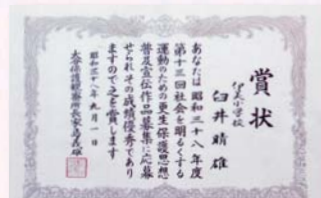 賞状
小学校
臼井晴雄
あなたは昭和三十八年度
第十三回社会を明るくする
運動のための更生保護思想
普及宣伝作品募集に応募
せられその成績優秀であり
ますので之を賞します
昭和三十八年九月一日
保護観察所長家島義雄